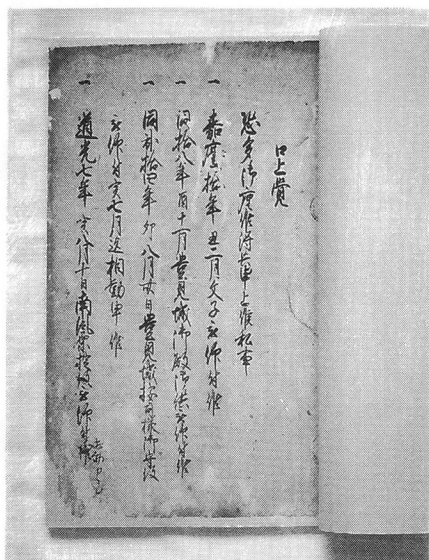 口上覚
恐多御座候得共申上候私事
一 嘉慶拾年丑二月文子被仰付候
一 同拾八年酉十一月豊見城御殿御供被仰付候
一 同弐拾四年卯八月廿日豊見城按司様御
被仰付亥七月迄相勤申候
一 道光七年亥八月十日南風原被仰付候